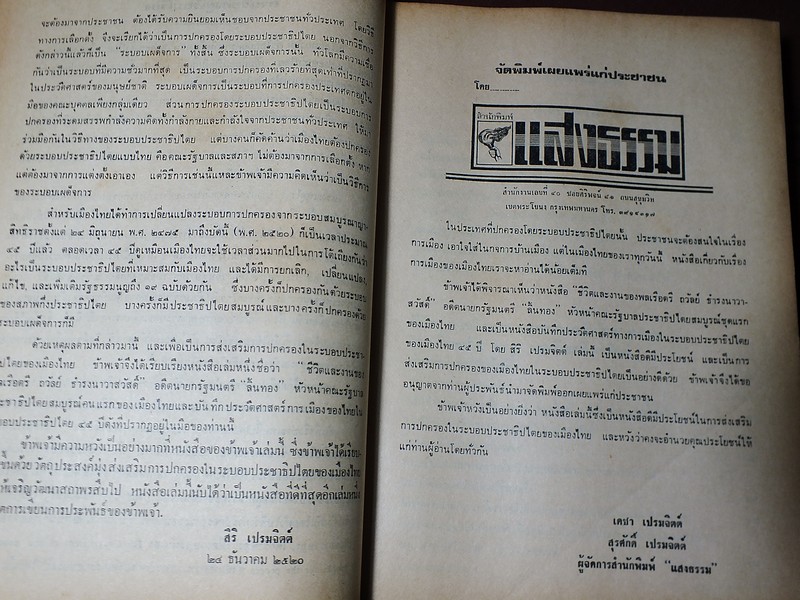 จะต้องมาจากประชาชน ต้องได้รับความยินยอมเห็นชอบจากประชาชนทั่วประเทศ โดยวิธี
ทางการเลือกตั้ง จึงจะเรียกได้ว่าเป็นการปกครองโดยระบอบประชาธิปไตย นอกจากวิธีการ
ดังกล่าวนี้แล้วก็เป็น "ระบอบเผด็จการ" ทั้งสิ้น ซึ่งระบอบเผด็จการนั้น ทั่วโลกมีความเชื่อ
กันว่าเป็นระบอบที่มีความชั่วมากที่สุด เป็นระบอบการปกครองที่เลวร้ายที่สุดเท่าที่ปรากฏมา
ในประวัติศาสตร์ของมนุษย์ชาติ ระบอบเผด็จการเป็นระบอบที่การปกครองประเทศตกอยู่ใน
มือของคณะบุคคลเพียงกลุ่มเดียว ส่วนการปกครองระบอบประชาธิปไตยเป็นระบอบการ
ปกครองที่ระดมสรรพกำลังความคิดทั้งกำลังกายและกำลังใจจากประชาชนทั่วประเทศ ให้มา
ร่วมมือกันในวิธีทางของระบอบประชาธิปไตย แต่บางคนก็คัดค้านว่าเมืองไทยต้องปกครอง
ด้วยระบอบประชาธิปไตยแบบไทย คือคณะรัฐบาลและสภาฯ ไม่ต้องมาจากการเลือกตั้ง หาก
แต่ต้องมาจากการแต่งตั้งเอาเอง แต่วิธีการเช่นนี้และข้าพเจ้ามีความคิดเห็นว่าเป็นวิธีการ
ของระบอบเผด็จการ
สำหรับเมืองไทยได้ทำการเปลี่ยนแปลงระบอบการปกครองจากระบอบสมบูรณาญา-
สิทธิราชตั้งแต่ ๒๔ มิถุนายน พ.ศ. ๒๔๗๕ มาถึงบัดนี้ (พ.ศ. ๒๕๒๐) ก็เป็นเวลาประมาณ
๔๕ ปีแล้ว ตลอดเวลา ๔๕ ปีดูเหมือนเมืองไทยจะใช้เวลาส่วนมากไปในการโต้เถียงกันว่า
อะไรเป็นระบอบประชาธิปไตยที่เหมาะสมกับเมืองไทย และได้มีการยกเลิก, เปลี่ยนแปลง,
แก้ไข, และเพิ่มเติมรัฐธรรมนูญถึง ๑๙ ฉบับด้วยกัน ซึ่งบางครั้งก็ปกครองกันด้วยระบอบ
ของสภาพกึ่งประชาธิปไตย บางครั้งก็มีประชาธิปไตยสมบูรณ์และบางครั้งก็ปกครองด้วย
ระบอบเผด็จการก็มี
ด้วยเหตุผลตามที่กล่าวมานี้ และเพื่อเป็นการส่งเสริมการปกครองในระบอบประชา-
ไตยของเมืองไทย ข้าพเจ้าจึงได้เรียบเรียงหนังสือเล่มหนึ่งชื่อว่า "ชีวิตและงานของ
เรือตรี ถวัลย์ ธำรงนาวาสวัสดิ์" อดีตนายกรัฐมนตรี "ลิ้นทอง" หัวหน้าคณะรัฐบาล
ธิปไตยสมบูรณ์คนแรกของเมืองไทยและบันทึกประวัติศาสตร์การเมืองของไทยใน
อบประชาธิปไตย ๔๕ ปีดังที่ปรากฏอยู่ในมือของท่านนี้
ข้าพเจ้ามีความหวังเป็นอย่างมากที่หนังสือของข้าพเจ้าเล่มนี้ ซึ่งข้าพเจ้าได้เรียบ
ขึ้นด้วยวัตถุประสงค์มุ่งส่งเสริมการปกครองในระบอบประชาธิปไตยของเมืองไทย
ห้เจริญวัฒนาสถาพรสืบไป หนังสือเล่มนี้นับได้ว่าเป็นหนังสือที่ดีที่สุดอีกเล่มหนึ่ง
ดการเขียนการประพันธ์ของข้าพเจ้า.
สิริ เปรมจิตต์
๒๔ ธันวาคม ๒๕๒๐
จัดพิมพ์เผยแพร่แก่ประชาชน
โดย..........
สำนักพิมพ์
แสงธรรม
สำนักงานเลขที่ ๔๐ ซอยศิริพจน์ ๔๑ ถนนสุขุมวิท
เขตพระโขนง กรุงเทพมหานคร โทร. ๓๙๑๔๖๑๗
ในประเทศที่ปกครองโดยระบอบประชาธิปไตยนั้น ประชาชนจะต้องสนใจในเรื่อง
การเมือง เอาใจใส่ในกิจการบ้านเมือง แต่ในเมืองไทยของเราทุกวันนี้ หนังสือเกี่ยวกับเรื่อง
การเมืองของเมืองไทยเราจะหาอ่านได้น้อยเต็มที
ข้าพเจ้าได้พิจารณาเห็นว่าหนังสือ "ชีวิตและงานของพลเรือตรี ถวัลย์ ธำรงนาวา-
สวัสดิ์" อดีตนายกรัฐมนตรี "ลิ้นทอง" หัวหน้าคณะรัฐบาลประชาธิปไตยสมบูรณ์ชุดแรก
ของเมืองไทย และเป็นหนังสือบันทึกประวัติศาสตร์ทางการเมืองในระบอบประชาธิปไตย
ของเมืองไทย ๔๕ ปี โดย สิริ เปรมจิตต์ เล่มนี้ เป็นหนังสือดีมีประโยชน์ และเป็นการ
ส่งเสริมการปกครองของเมืองไทยในระบอบประชาธิปไตยเป็นอย่างดีด้วย ข้าพเจ้าจึงได้ขอ
อนุญาตจากท่านผู้ประพันธ์นำมาจัดพิมพ์ออกเผยแพร่แก่ประชาชน
ข้าพเจ้าหวังเป็นอย่างยิ่งว่า หนังสือเล่มนี้ซึ่งเป็นหนังสือดีมีประโยชน์ในการส่งเสริม
การปกครองในระบอบประชาธิปไตยของเมืองไทย และหวังว่าคงจะอำนวยคุณประโยชน์ให้
แก่ท่านผู้อ่านโดยทั่วกัน
เดชา เปรมจิตต์
สุรศักดิ์ เปรมจิตต์
ผู้จัดการสำนักพิมพ์ "แสงธรรม"